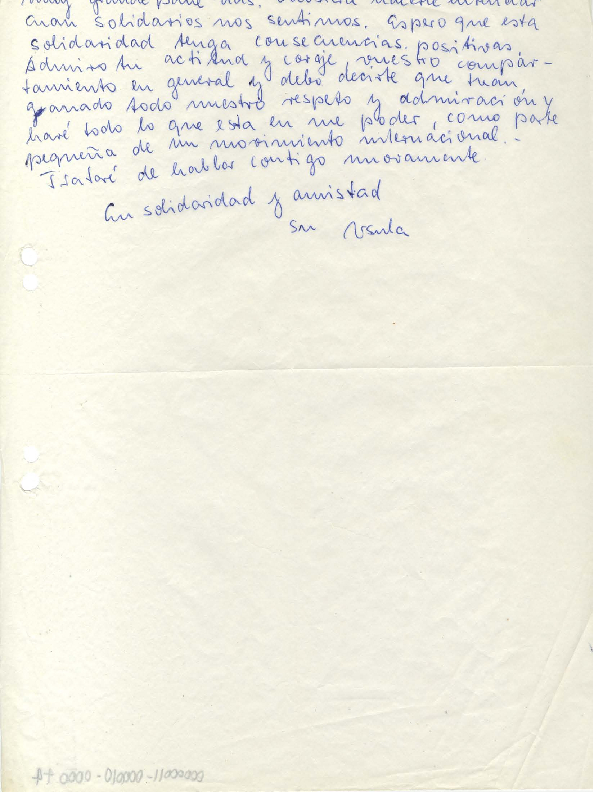 muy grande para
cuan solidarios nos sentimos. Espero que esta
solidaridad tenga consecuencias positivas.
Admiro tu actitud y coraje, vuestro compár-
tamiento en general y debo decirte que han
ganado todo nuestro respeto y admiración y
haré todo lo que esta en me poder, como parte
pequeña de un movimiento internacional. -
Trataré de hablar contigo nuovamente
En solidaridad y amistad
su Ursula